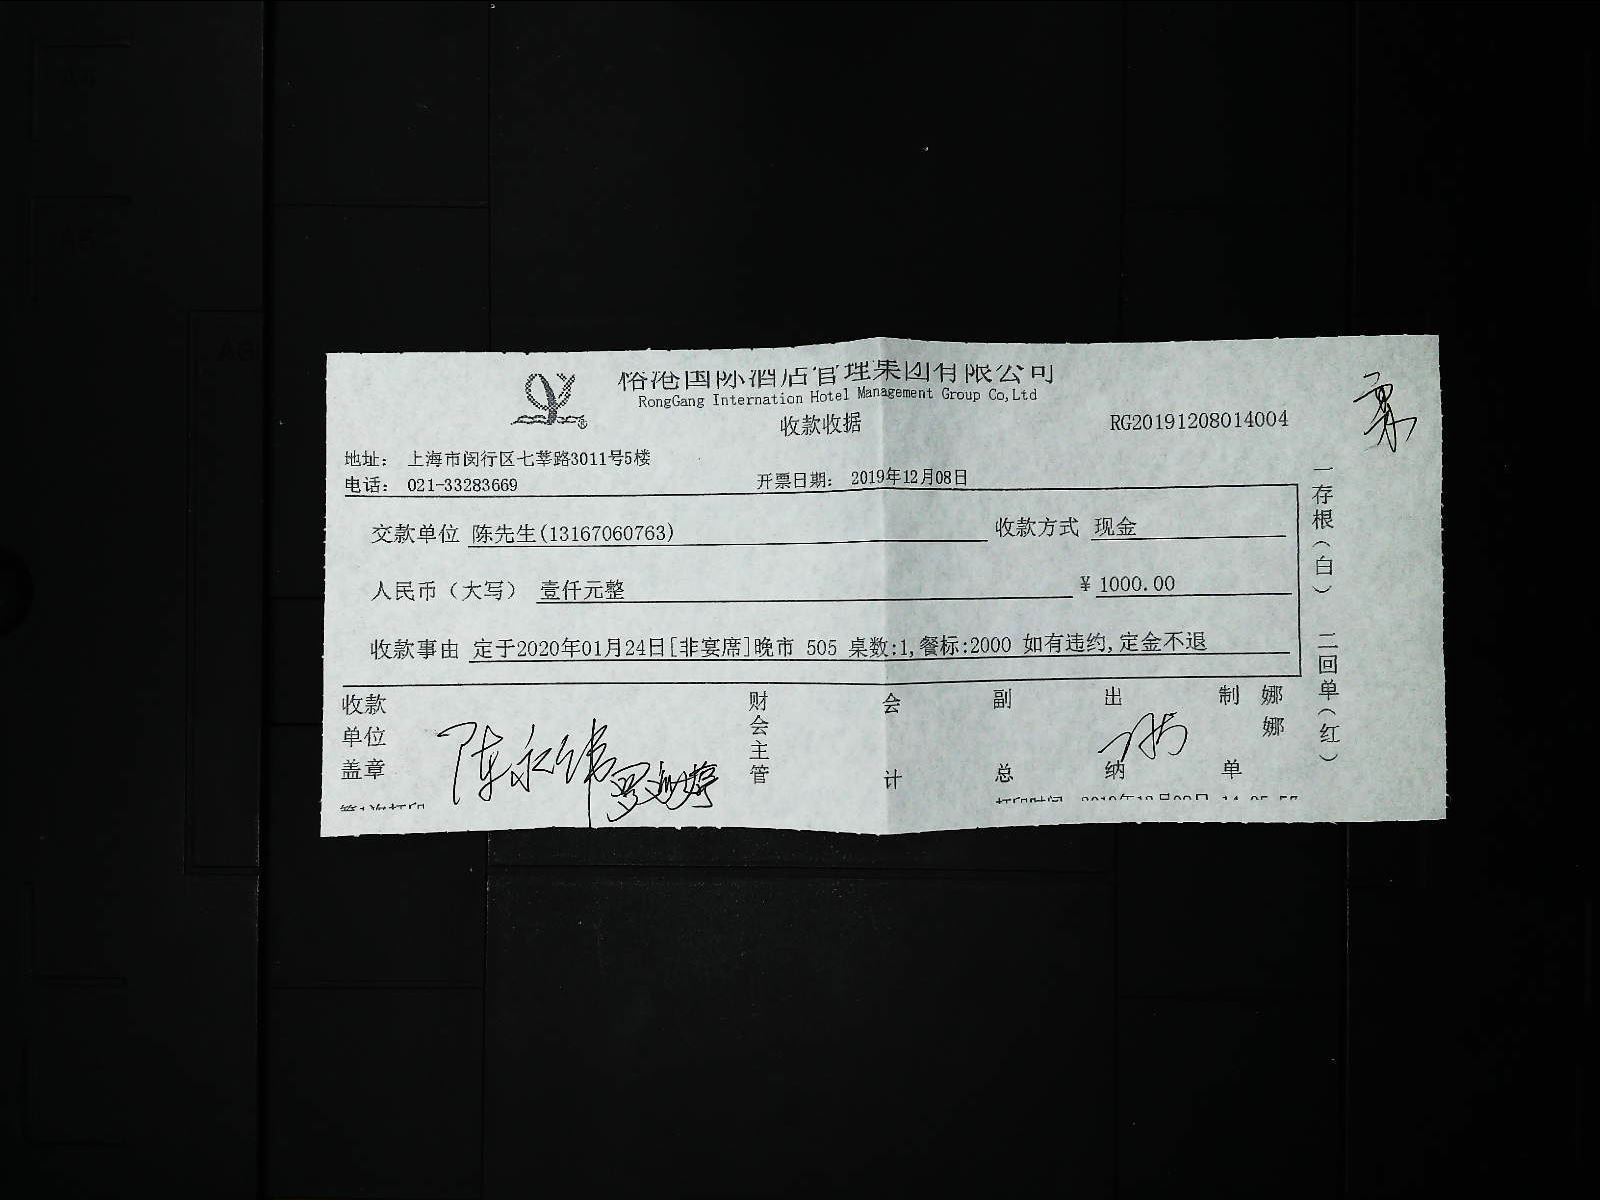 榕港国际酒店管理集团有限公司
RongGang Internation Hotel Management Group Co,Ltd
收款收据
RG20191208014004
地址： 上海市闵行区七莘路3011号5楼
电话： 021-33283669
开票日期： 2019年12月08日
交款单位 陈先生(13167060763)
收款方式 现金
人民币（大写） 壹仟元整
¥ 1000.00
收款事由 定于2020年01月24日[非宴席]晚市 505 桌数:1,餐标:2000 如有违约,定金不退
收款单位盖章
财会主管
会计
副总
出纳
制单
娜娜
一存根（白） 二回单（红）
第1次打印